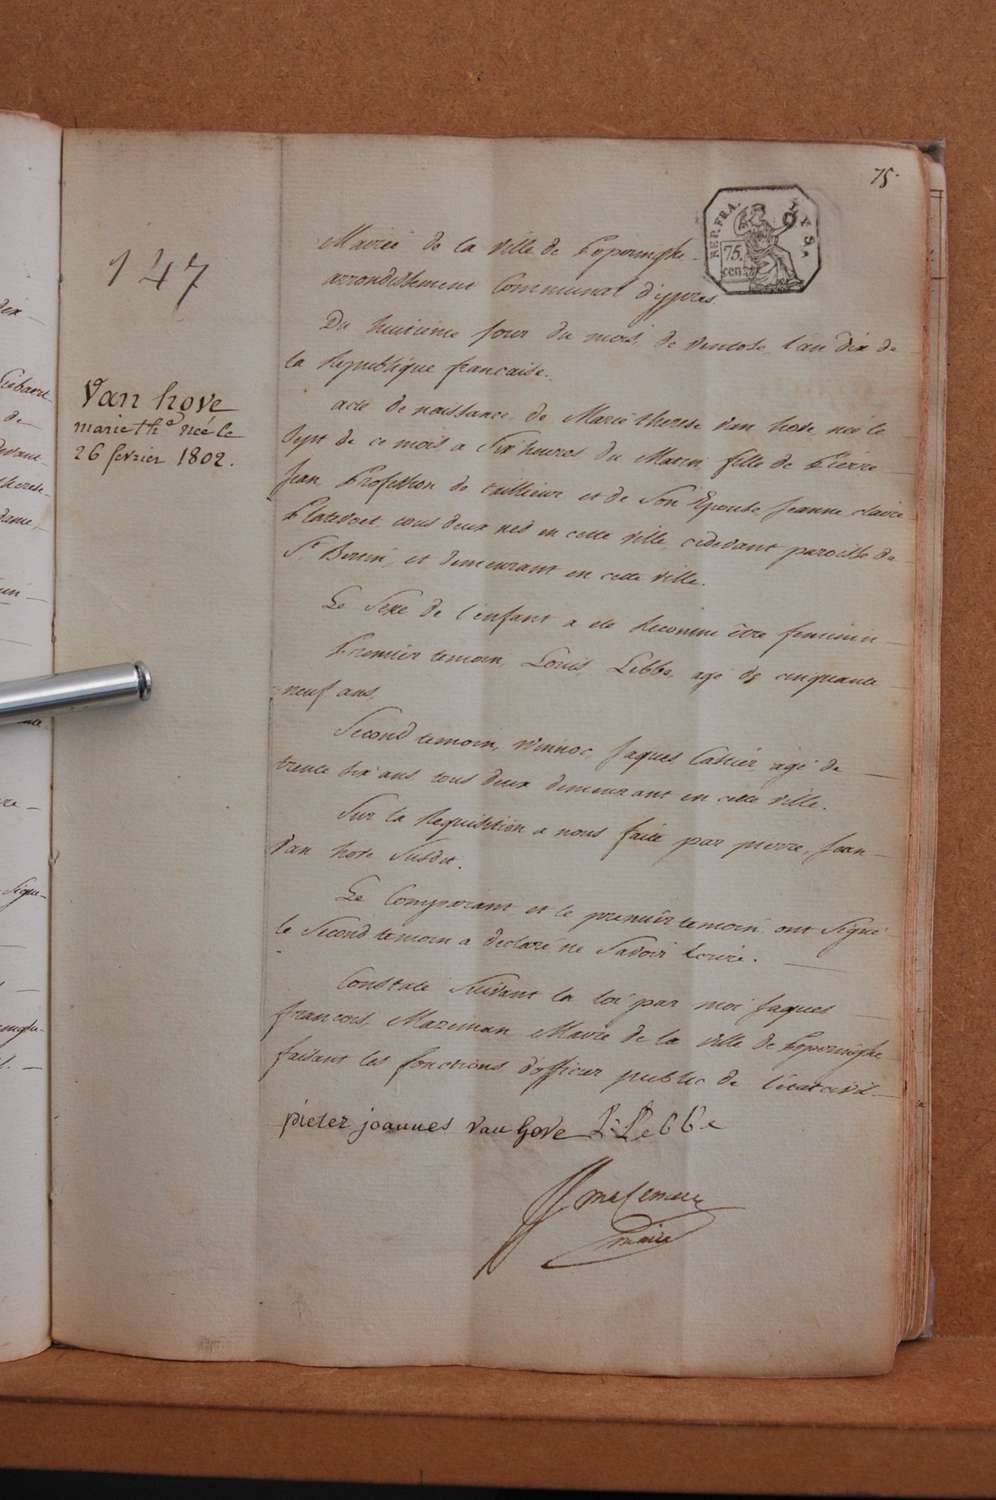 75.
REP. FRA.
75.
cent.
LYS.
147
Mairie de la ville de Poperinghe
arrondissement Communal d'ypres
Du huitieme jour du mois de ventose l'an dix de
la Republique francaise.
Van hove
marie th.e née le
26 fevrier 1802.
acte de naissance de Marie therese Van hove née le
sept de ce mois a six heures du Matin fille de Pierre
Jean Profession de tailleur et de son Epouse Jeanne claire
Platevoet tous deux nés en cette ville, cidevant paroisse de
St Bertin, et demeurant en cette ville.
Le Sexe de l'enfant a ete Reconnu être feminin
Premier temoin, Louis Lebbe, agé de cinquante
neuf ans,
Second temoin, Winnoc Jaques Cahier agé de
trente six ans tous deux demeurant en cette ville.
Sur la Requisition a nous faite par pierre, Jean
Van hove Susdit.
Le Comparant et le premier temoin ont Signé
le Second temoin a declaré ne Savoir Ecrire.
Constaté Suivant la loi par moi Jaques
francois Mazeman Maire de la ville de Poperinghe
faisant les fonctions d'officier public de l'état civil.
pieter joannes van hove L: Lebbe
maire